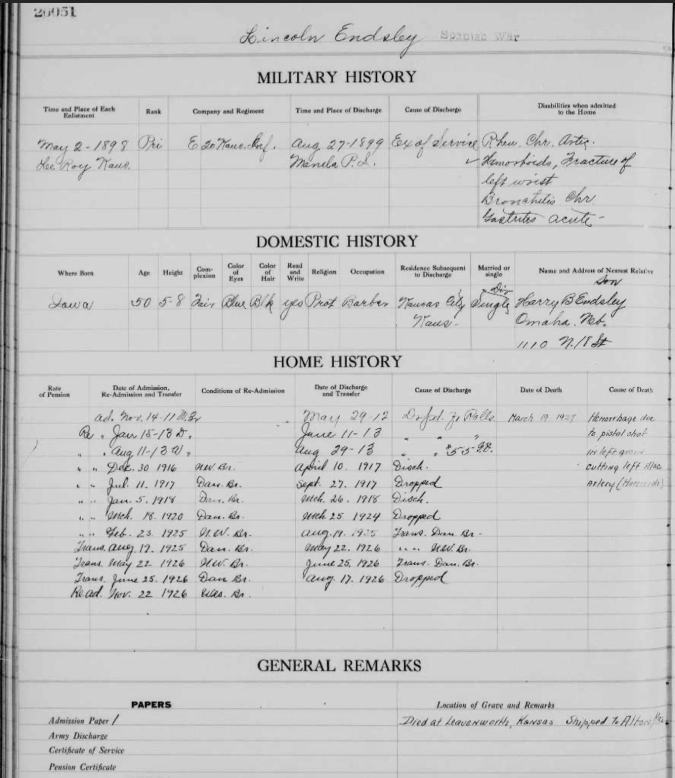 20051
Lincoln Endsley Spanish War
MILITARY HISTORY
Time and Place of Each Enlistment Rank Company and Regiment Time and Place of Discharge Cause of Discharge Disabilities when admitted to the Home
May 2-1898 Pri E 20 Kans. Inf. Aug 27-1899 Ex of Service Rheu. Chr. Artic.
Lee Roy Kans. Manila P.I. Hemorrhoids, Fracture of
left wrist
Bronchitis Chr
Gastrites acute-
DOMESTIC HISTORY
Where Born Age Height Complexion Color of Eyes Color of Hair Read and Write Religion Occupation Residence Subsequent to Discharge Married or single Name and Address of Nearest Relative
Son
Div
Iowa 50 5-8 Fair Blue Blk yes Prot Barber Kansas City Single Harry B Endsley
Kans- Omaha. Neb.
1110 N. 18 St
HOME HISTORY
Rate of Pension Date of Admission, Re-Admission and Transfer Conditions of Re-Admission Date of Discharge and Transfer Cause of Discharge Date of Death Cause of Death
ad. Nov. 14-11 May 29 12 March 19 Hemorrhage due
Re " Jan 15-13 June 11-13 " " " to pistol shot
" " Aug 11-13 Aug 29-13 " " in left groin
" " Dec. 30 1916 N.W Br. April 10. 1917 Disch. cutting left iliac
" " Jul. 11. 1917 Dan. Br. Sept. 27. 1917 Dropped artery (Homicide)
" " Jan. 5. 1918 Dan. Br. Mch. 26. 1918 Disch.
" " Mch. 18. 1920 Dan. Br. Mch 25 1924 Dropped
" " Feb. 23. 1925 N.W. Br. Aug. 19. 1925 Trans. Dan Br.
Trans. Aug. 19. 1925 Dan. Br. May 22. 1926 " " N.W. Br.
Trans. May 22 1926 N.W. Br. June 25, 1926 Trans. Dan. Br.
Trans. June 25. 1926 Dan Br. Aug 17. 1926 Dropped
Re ad. Nov. 22 1926 Br.
GENERAL REMARKS
PAPERS Location of Grave and Remarks
Admission Paper 1 Died at Leavenworth, Kansas Shipped to Alton,
Army Discharge
Certificate of Service
Pension Certificate